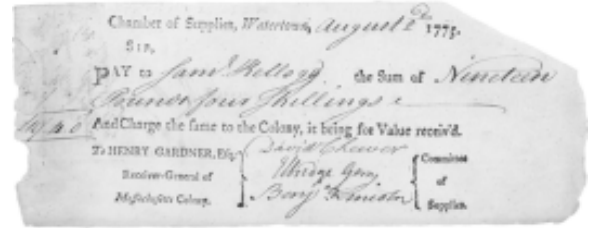 Chamber of Supplies, Watertown, August 2d 1775.
SIR,
PAY to Saml. Kellogg the Sum of Nineteen
Pounds four Shillings
19 4 0 And Charge the same to the Colony, it being for Value receiv'd.
To HENRY GARDNER, Esq; David Cheever
Receiver-General of Elbridge Gerry
Massachusetts Colony. Benj
Committee of Supplies.